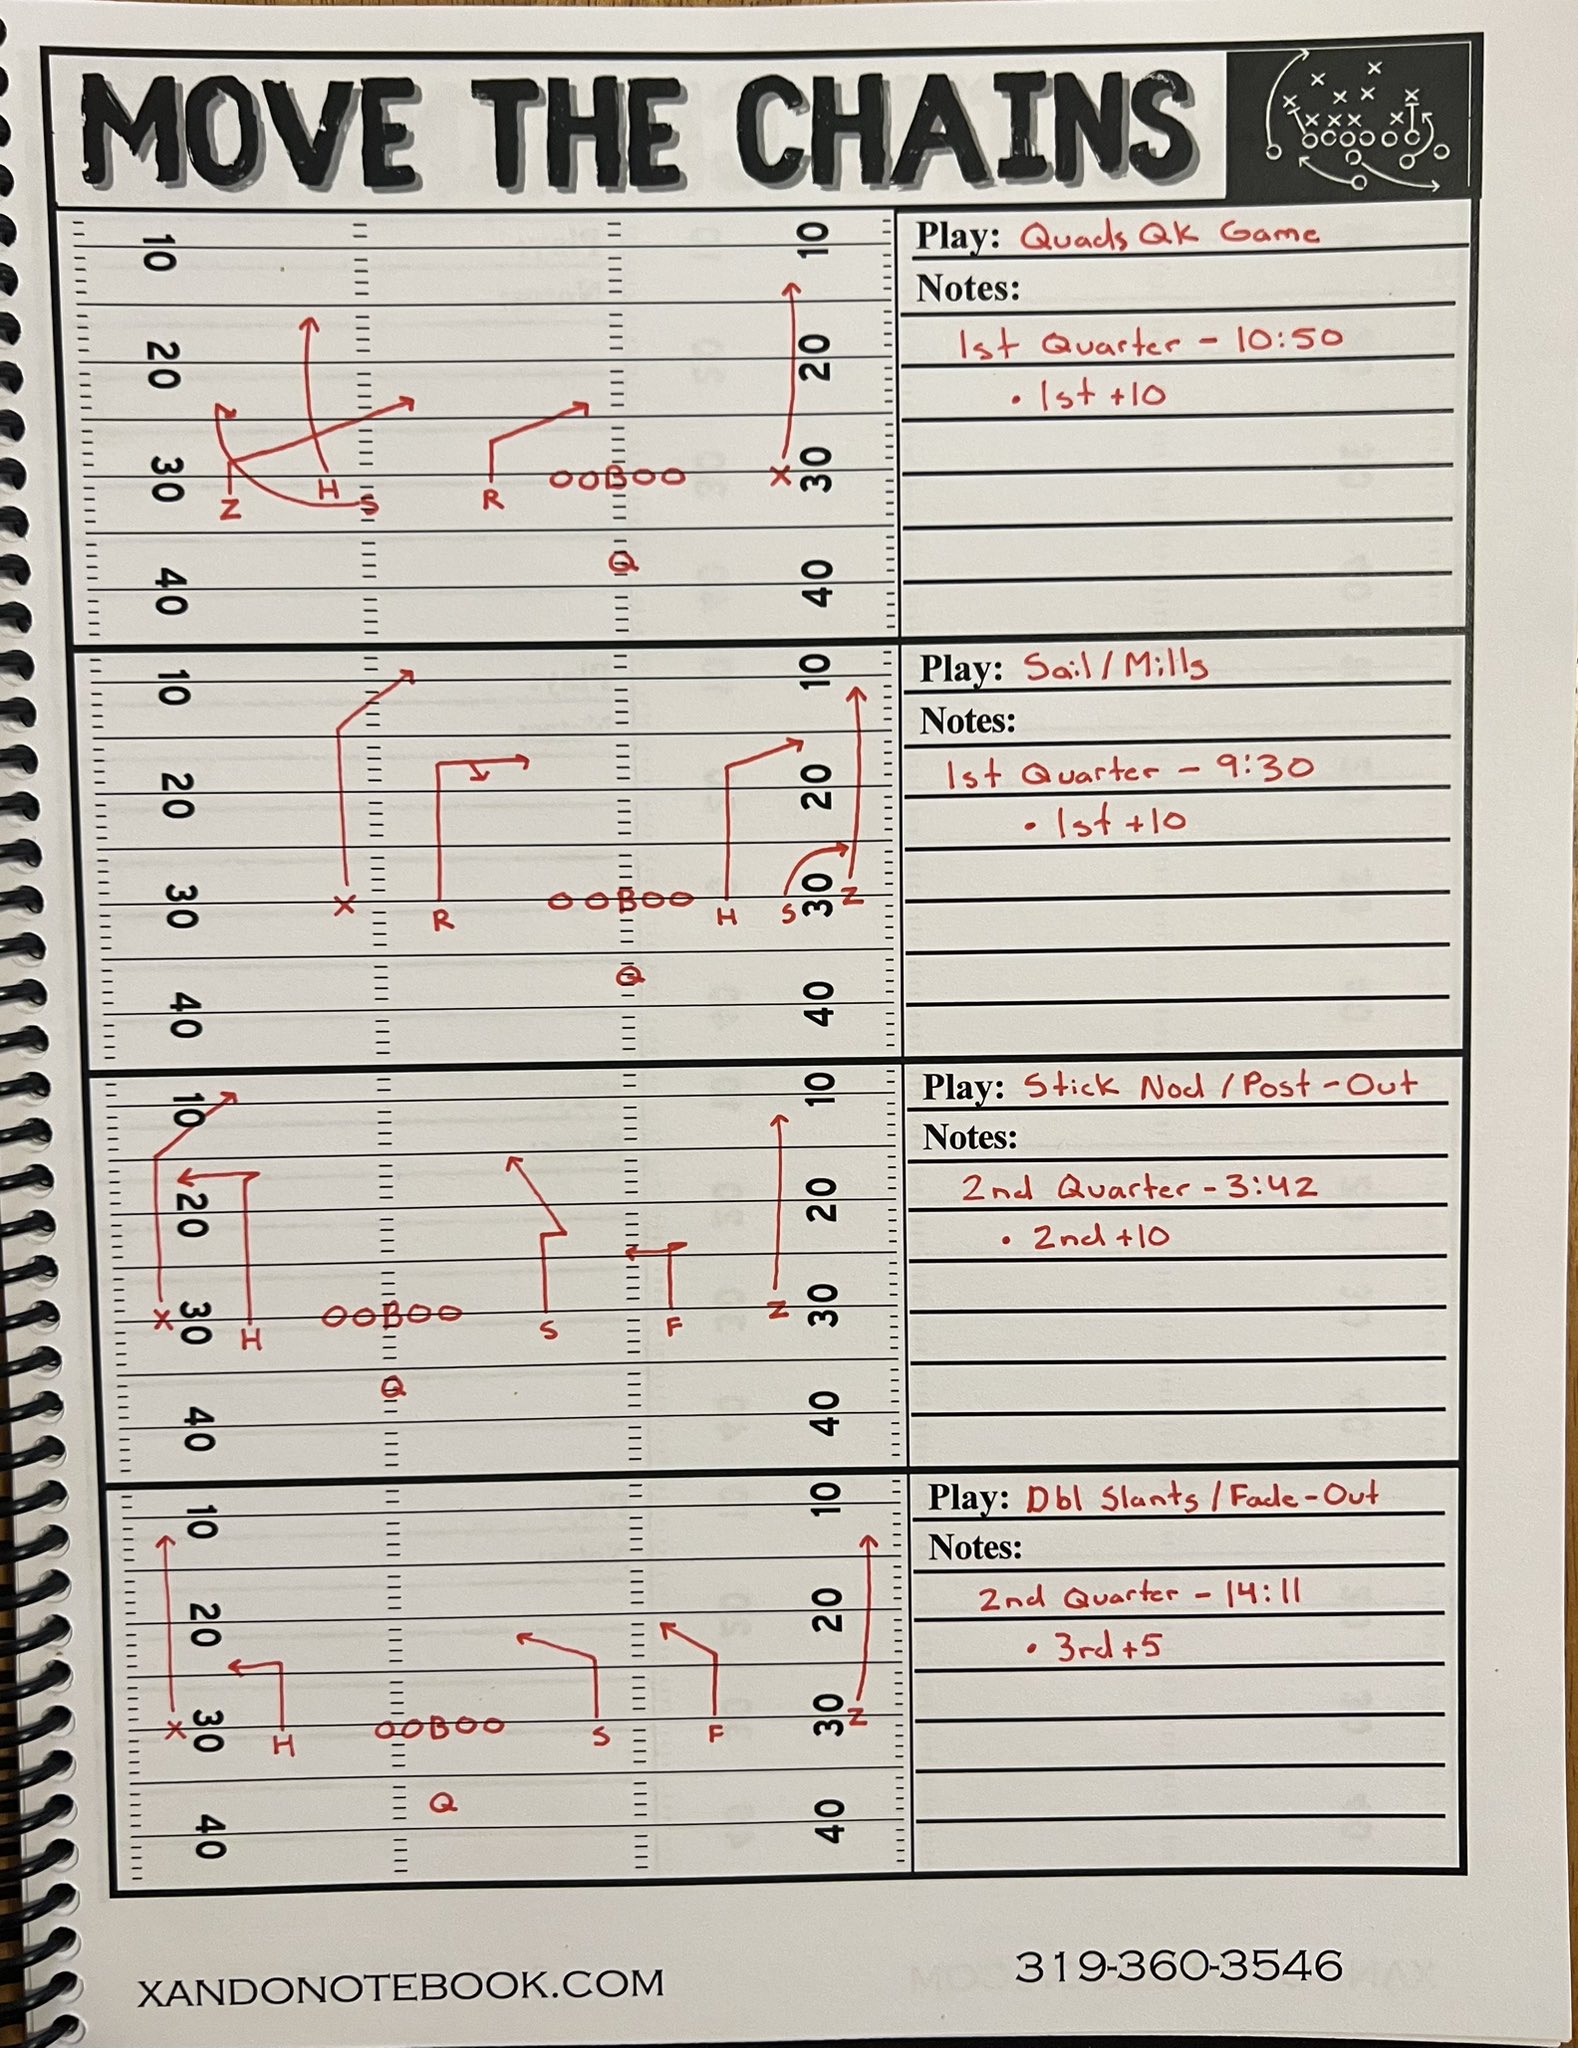 MOVE THE CHAINS
10 10
20 20
30 30
40 40
Z H S R OOBOO X
Q
Play: Quads QK Game
Notes:
1st Quarter - 10:50
• 1st +10
10 10
20 20
30 30
40 40
X R OOBOO H S Z
Q
Play: Sail / Mills
Notes:
1st Quarter - 9:30
• 1st +10
10 10
20 20
30 30
40 40
X H OOBOO S F Z
Q
Play: Stick Nod / Post-Out
Notes:
2nd Quarter - 3:42
• 2nd +10
10 10
20 20
30 30
40 40
X H OOBOO S F Z
Q
Play: Dbl Slants / Fade-Out
Notes:
2nd Quarter - 14:11
• 3rd +5
XANDONOTEBOOK.COM
319-360-3546